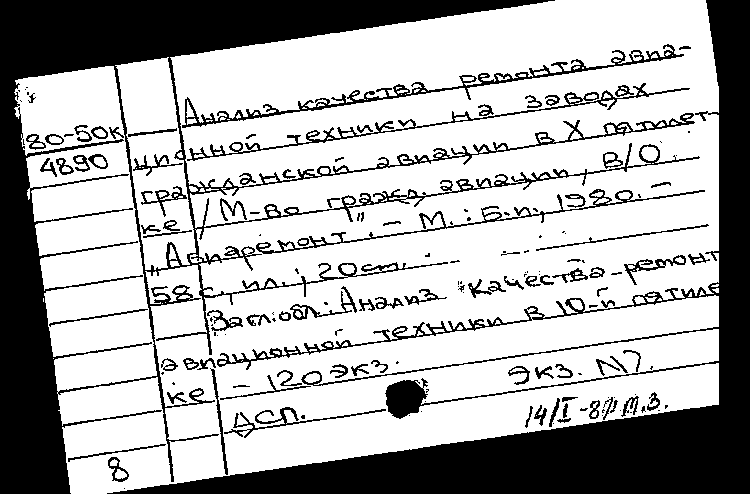 Анализ качества ремонта авиа-
80-50к
4890
ционной техники на заводах
гражданской авиации в X пятилет-
ке / М-во гражд. авиации, В/О
„Авиаремонт". - М.: Б.и., 1980. -
58 с., ил.; 20 см.
Загл. обл.: Анализ качества ремонт
авиационной техники в 10-й пятиле
ке - 120 экз.
ДСП. Экз. N7.
8